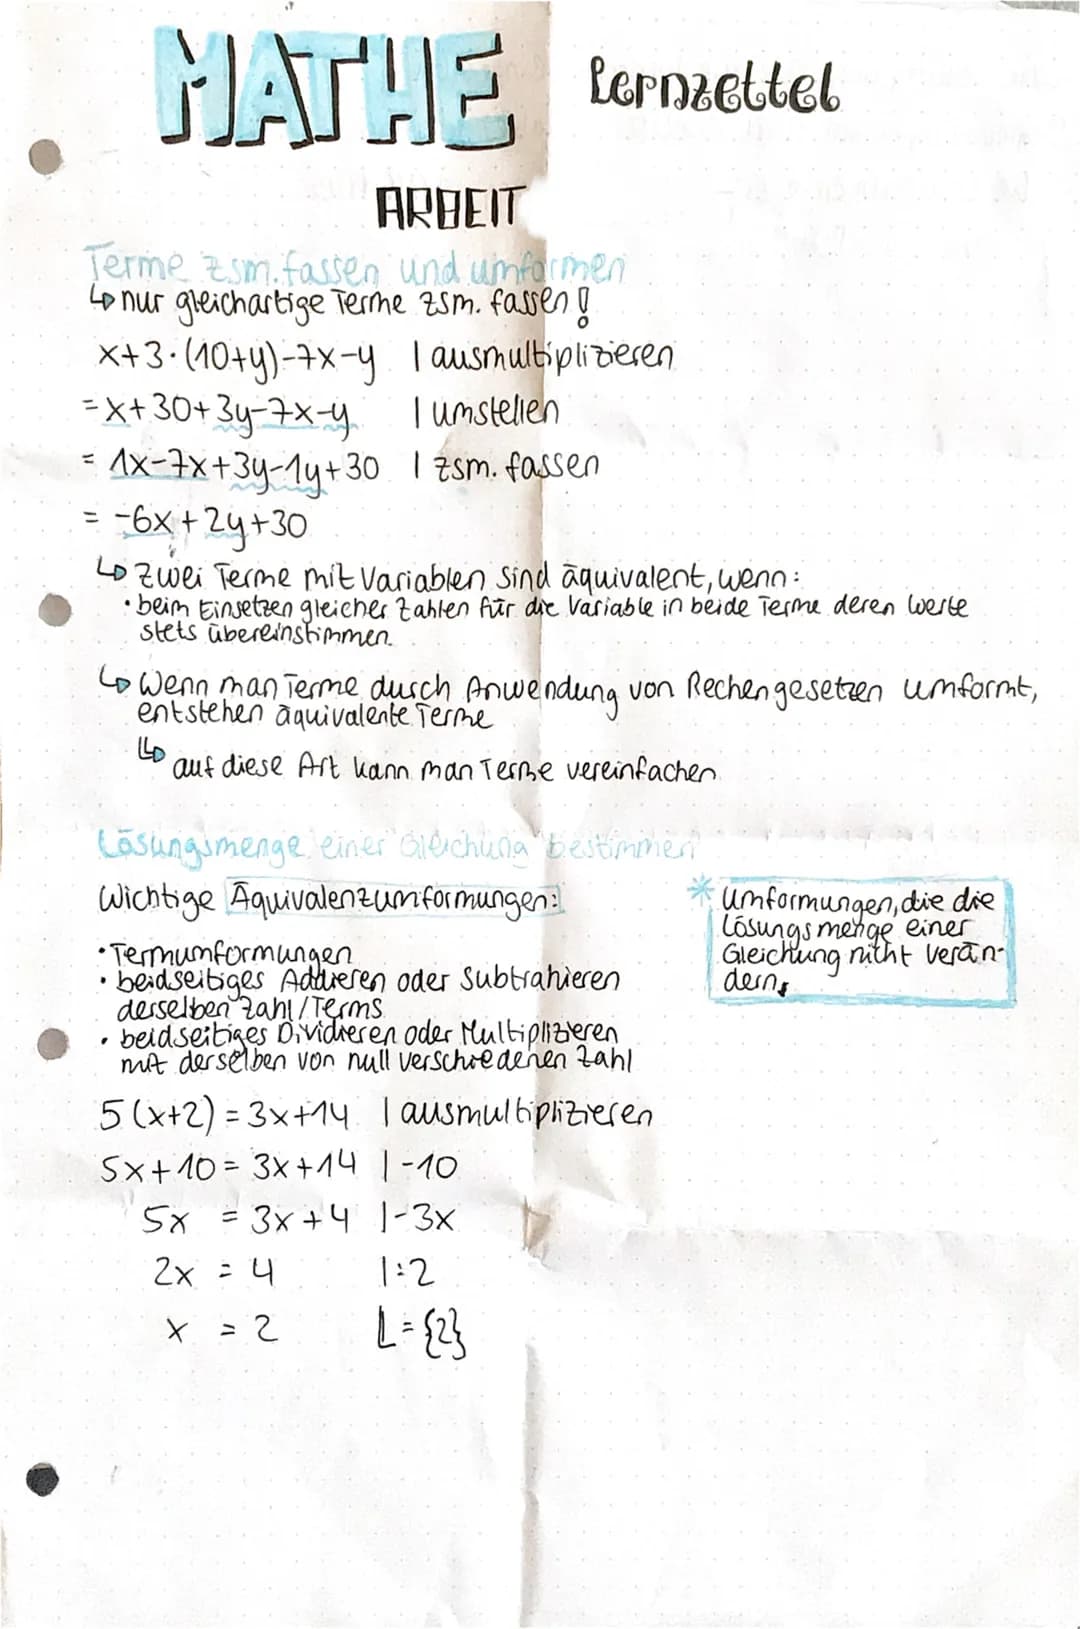 MATHE Lernzettel
ARBEIT
Terme zsm. fassen und umformen
↳ nur gleichartige Terme zsm. fassen!
x+3·(10+y)-7x-y | ausmultiplizieren
=x+30+3y-7x-y | umstellen
= 1x-7x+3y-1y+30 | zsm. fassen
= -6x+2y+30
↳ Zwei Terme mit Variablen sind äquivalent, wenn:
• beim Einsetzen gleicher Zahlen für die Variable in beide Terme deren Werte
stets übereinstimmen.
↳ Wenn man Terme durch Anwendung von Rechengesetzen umformt,
entstehen äquivalente Terme
↳ auf diese Art kann man Terme vereinfachen
Lösungsmenge einer Gleichung bestimmen
Wichtige Äquivalenzumformungen:
• Termumformungen
• beidseitiges Addieren oder Subtrahieren
derselben Zahl/Terms
• beidseitiges Dividieren oder Multiplizieren
mit derselben von null verschiedenen Zahl
* Umformungen, die die
Lösungsmenge einer
Gleichung nicht verän-
dern,
5(x+2)=3x+14 | ausmultiplizieren
5x+10=3x+14 |-10
5x =3x+4 |-3x
2x = 4 |:2
x = 2 L={2}